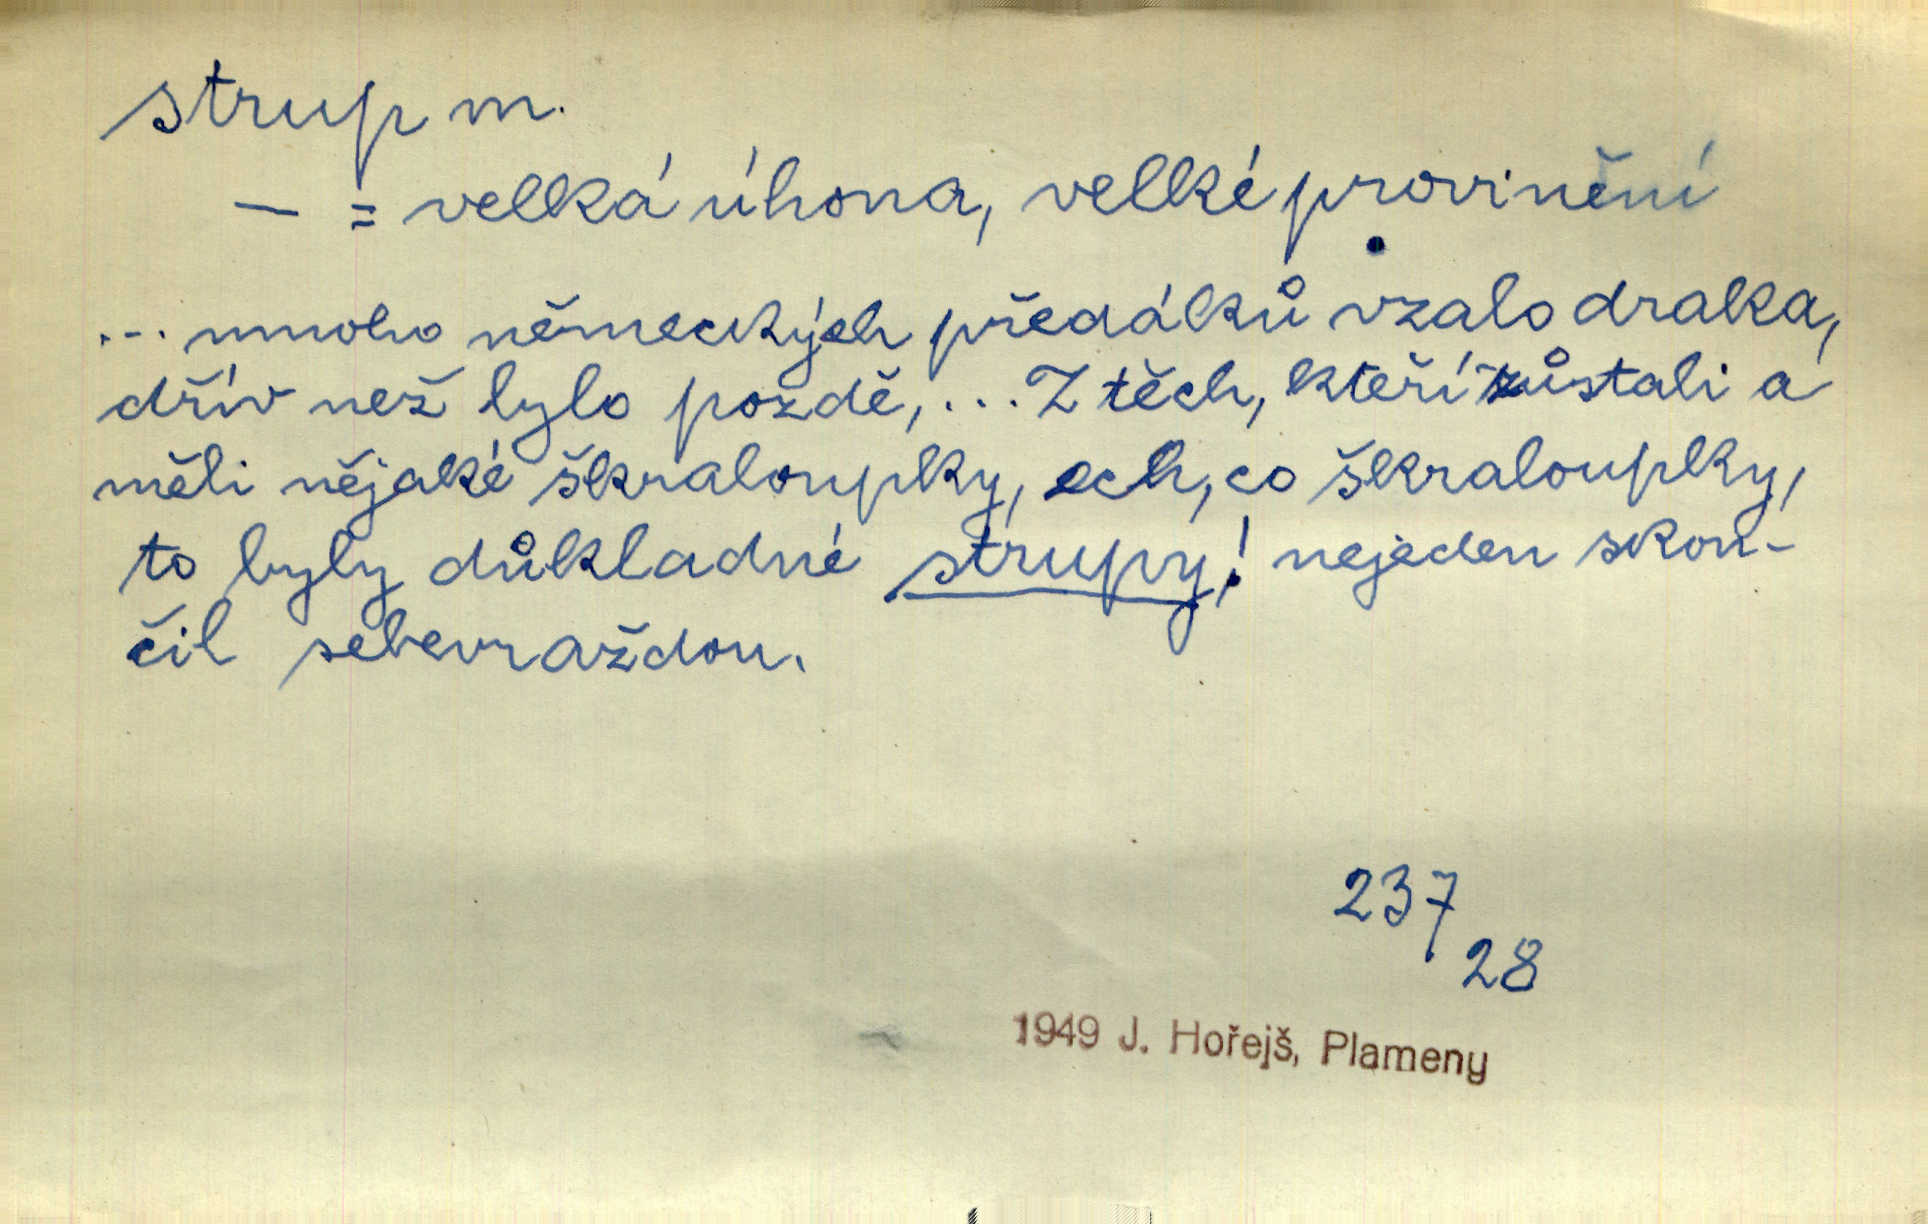 strup m.
— = velká úhona, velké provinění
... mnoho německých předáků vzalo draka,
dřív než bylo pozdě, ... Z těch, kteří zůstali a
měli nějaké škraloupky, ech, co škraloupky,
to byly důkladné strupy! nejeden skon-
čil sebevraždou.
237
28
1949 J. Hořejš, Plameny